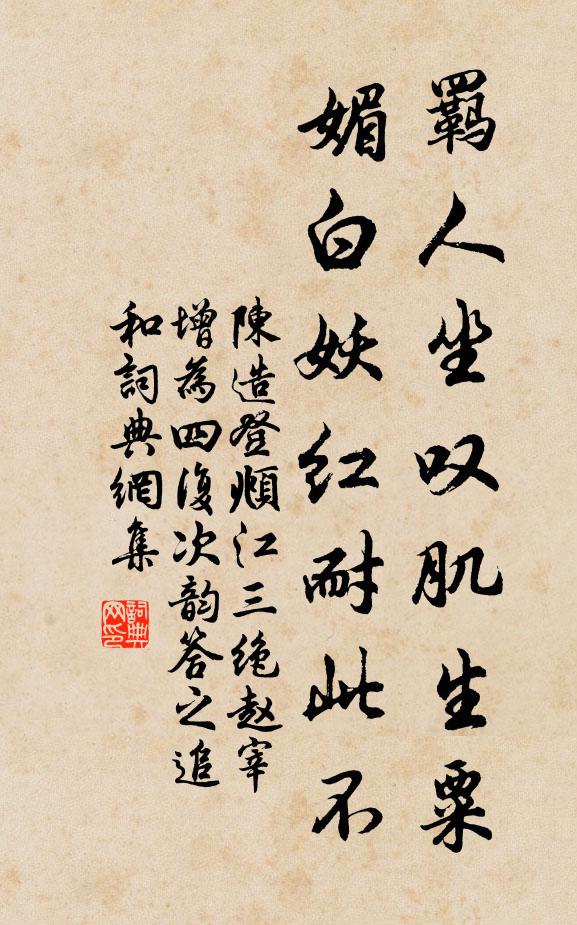 羈人坐叹肌生粟
媚白妖红耐此不
陳造登頫江三绝赵宰
增為四復次韵答之追
和詞典網集
詞典网印